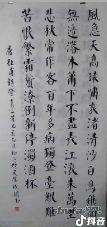 風急天高猿嘯哀渚清沙白鳥飛迴
無邊落木蕭蕭下不盡長江滾滾來萬里
悲秋常作客百年多病獨登臺艱難
苦恨繁霜鬢潦倒新停濁酒杯
唐杜甫詩登高
抖音